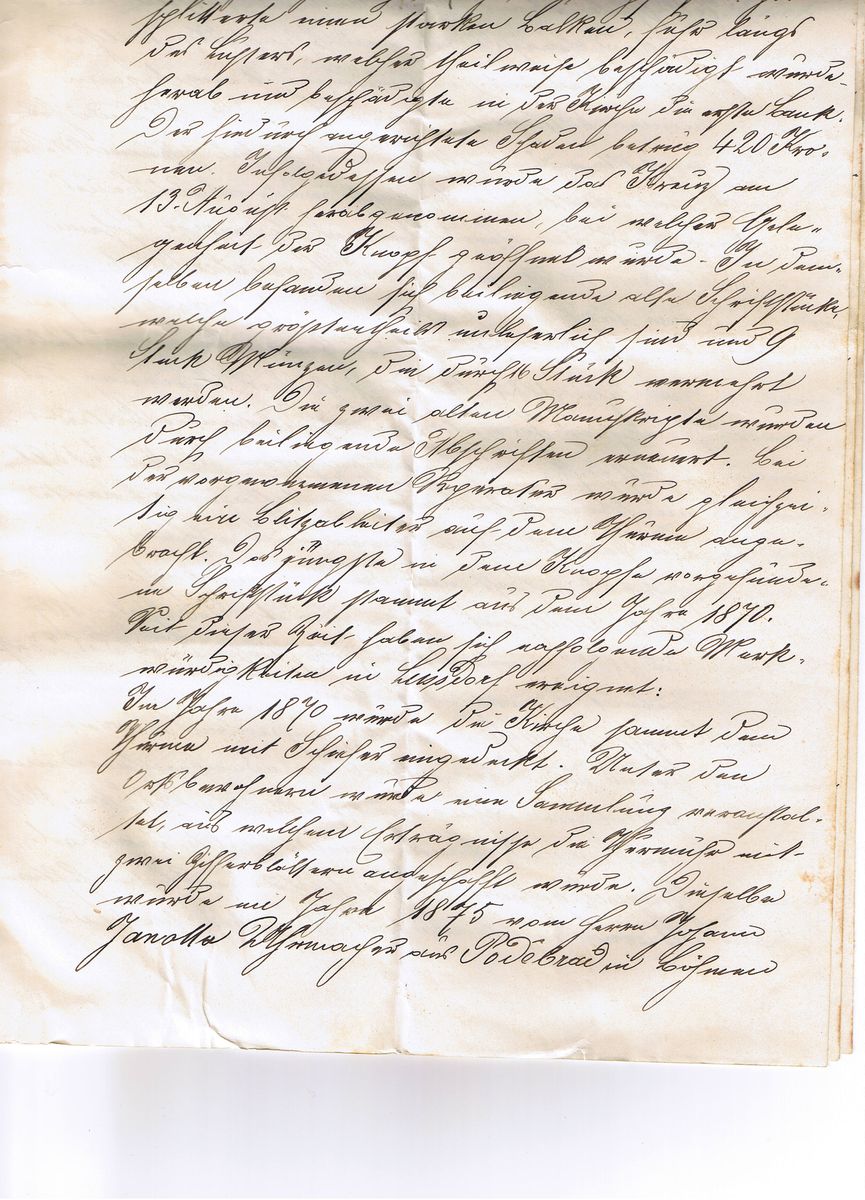 splitterte einen starken Balken, fuhr längs
des Lusters, welcher theilweise beschädigt wurde
herab und beschädigte in der Kirche die erste Bank.
Der hiedurch angerichtete Schaden betrug 420 Kro-
nen. Infolgedessen wurde das Kreuz am
13. August herabgenommen, bei welcher Gele-
genheit der Knopf geöffnet wurde. In dem-
selben befanden sich beiliegende alte Schriftstücke,
welche größtentheils unleserlich sind und 9
Stück Münzen, die durch 16 Stück vermehrt
werden. Die zwei alten Manuskripte wurden
durch beiliegende Abschriften erneuert. Bei
der vorgenommenen Reperatur wurde gleichzei-
tig ein Blitzableiter auf dem Thurme ange-
bracht. Das jüngste in dem Knopfe vorgefunde-
ne Schriftstück stammt aus dem Jahre 1870.
Seit dieser Zeit haben sich nachfolgende Merk-
würdigkeiten in Lussdorf ereignet:
Im Jahre 1870 wurde die Kirche sammt dem
Thurme mit Schiefer eingedeckt. Unter den
Ortsbewohnern wurde eine Sammlung veranstal-
tet, aus welchem Erträgnisse die Thurmuhr mit
zwei Zifferblättern angeschafft wurde. Dieselbe
wurde im Jahre 1875 vom Herrn Johann
Janotta Uhrmacher aus Poděbrad in Böhmen